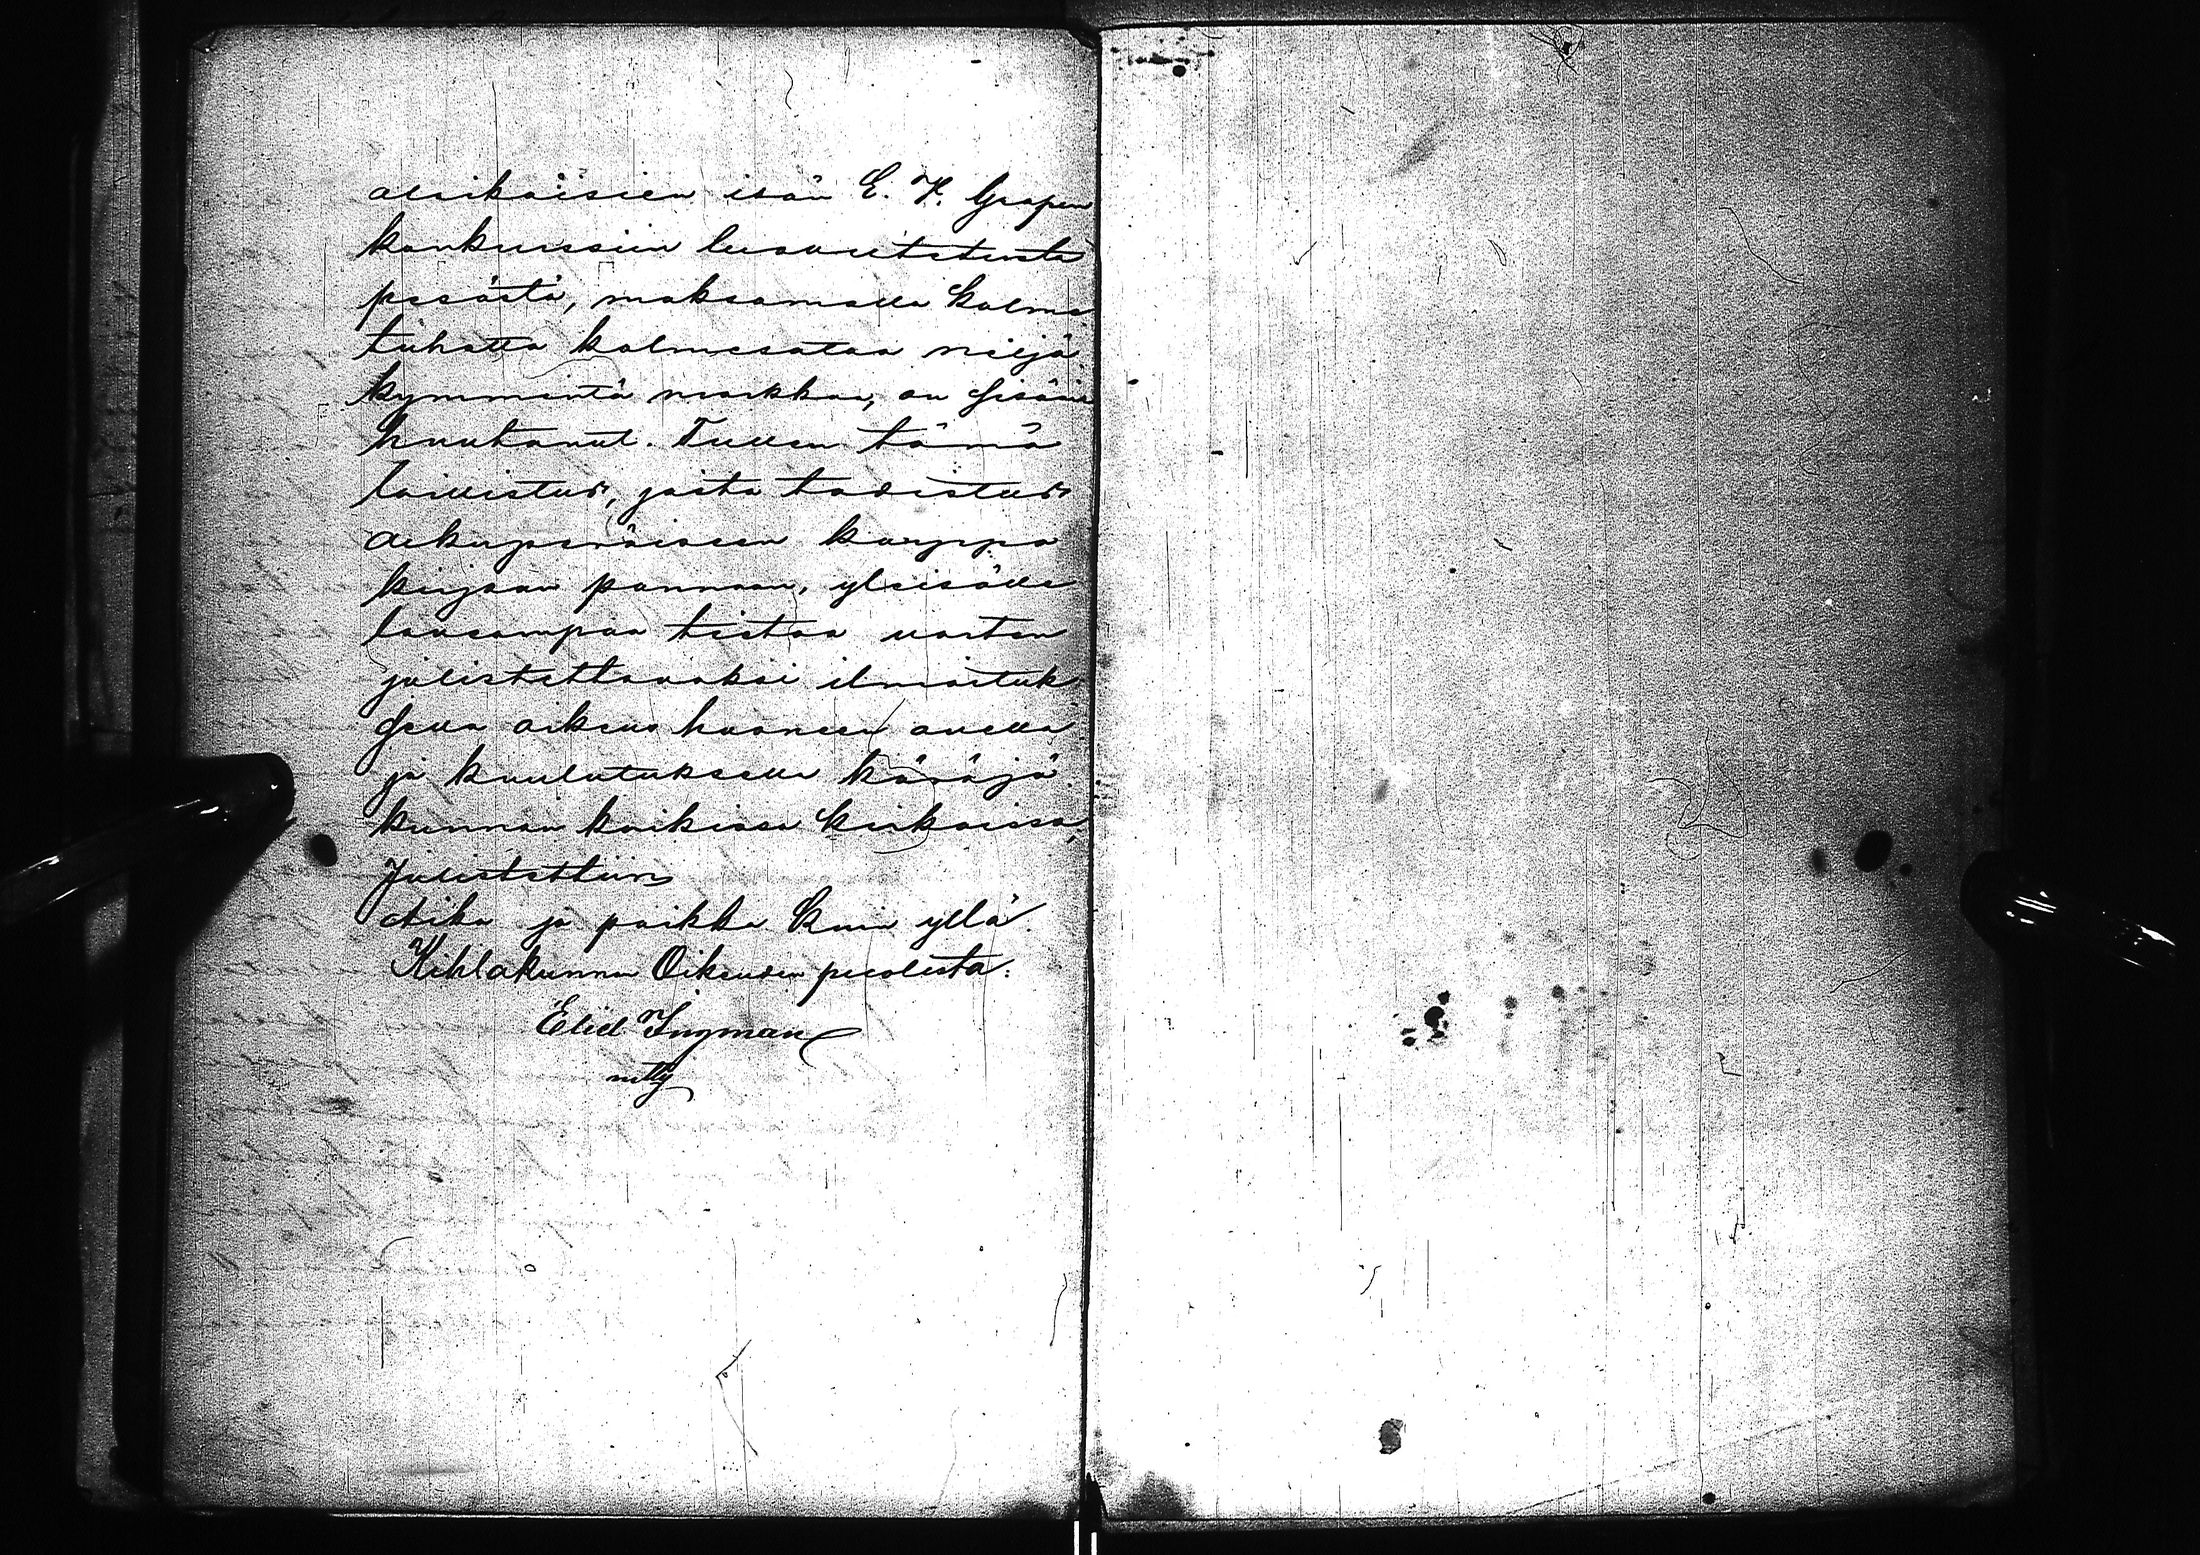 alaikäisien isän E. K. Grapen
konkurssiin luovutetusta
pesästä, maksamalla kolme
tuhatta kolmesataa neljä
kymmentä markkaa, on sisään
huutanut. Tullen tämä
laillistus, josta todistus
alkuperäiseen kauppa
kirjaan pannaan, yleisölle
laveampaa tietoa varten
julistettavaksi ilmoituk
sella oikeus huoneen ovella
ja kuulutuksella käräjä
kunnan kaikissa kirkoissa,
Julistettiin
Aika ja paikka kuin yllä.
Kihlakunnan Oikeuden puolesta:
Eliel Ingman